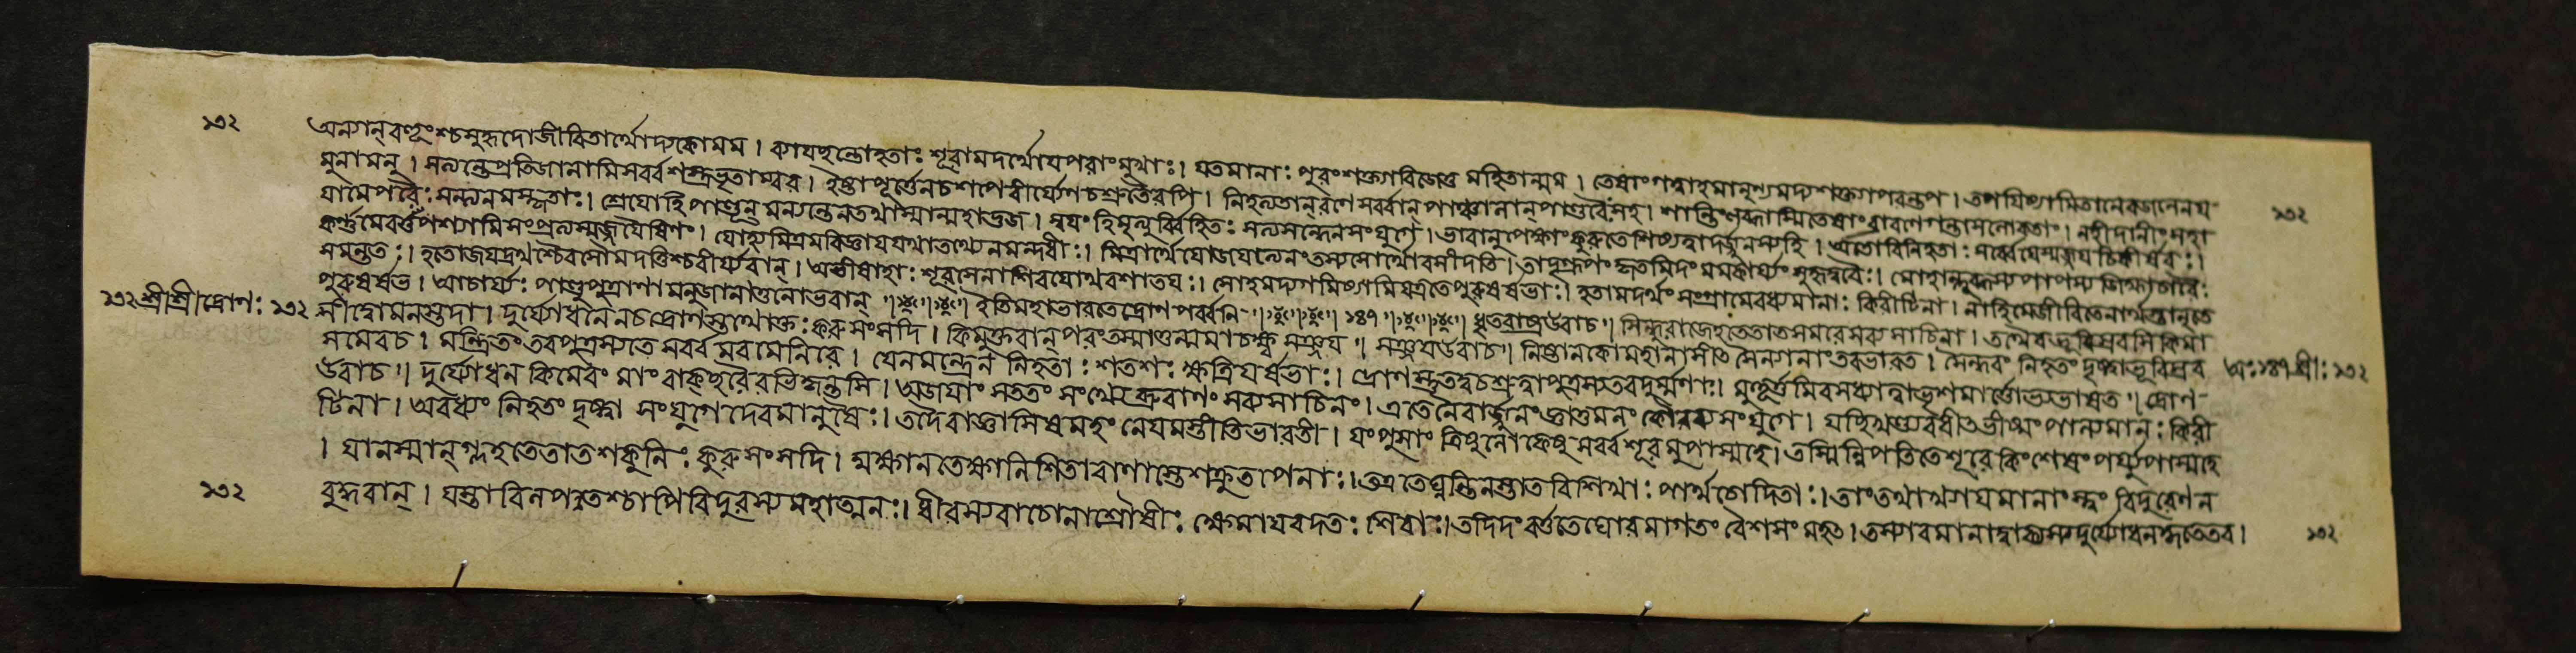 ১৩২ অন্যান্ বহূংশ্চ সুহৃদো জীবিতার্থোদ্যকো মম। ব্যযচ্ছন্তো হতাঃ শূরা মদর্থে যে পরাংমুখাঃ। যতমানাঃ পুরং শক্ত্যা বিজেতু মহিতান্মম। তেষাং গত্বাহমানৃণ্যমদ্য শক্ত্যা পরন্তপ। তর্পযিষ্যামি তানেব জলেন য
মুনামনু। সত্যন্তে প্রতিজানামি সর্ব্বশস্ত্রভৃতাম্বর। ইষ্টাপূর্ত্তেন চ শপে বীর্য্যেণ চ শ্রুতৈরপি। নিহত্য তান্ রণে সর্ব্বান্ পাঞ্চালান্ পাণ্ডবৈঃ সহ। শান্তিং লব্ধাস্মি তেষাং বা রণে গন্তা সলোকতাং। নহীদানীং সহা ১৩২
যা মে পরৈঃ সন্ত্যনমস্কৃতাঃ। শ্রেযো হি পাণ্ডূন্ মন্যন্তে ন তথাস্মান্মহাদ্ভুজ। স্বযং হি মৃত্যুর্বিহিতঃ সত্যসন্ধেন সংযুগে। ভবানুপেক্ষাং কুরুতে শিষ্যত্বাদর্জ্জুনস্য হি। অতো বিনিহতাঃ সর্ব্বে যেস্মজ্জযচিকীর্ষবঃ।
কর্ণমেব তু পশ্যামি সংপ্রত্যস্মজ্জযৈষিণং। যো হি মিত্রমবিজ্ঞায যথাতথ্যেন মন্দধীঃ। মিত্রার্থে যোজযত্যেনং তস্য সোর্থোবসীদতি। তাদৃগ্রূপং কৃতমিদং মম কার্য্যং সুহৃদ্ব্রুবৈঃ। মোহাল্লুব্ধস্য পাপস্য জিহ্মাচারৈঃ
সমন্ততঃ। হতো জযদ্রথশ্চৈব সৌমদত্তিশ্চ বীর্য্যবান্। অভীষাহাঃ শূরসেনাঃ শিবযোথ বশাতযঃ। সোহমদ্য গমিষ্যামি যত্র তে পুরুষর্ষভাঃ। হতা মদর্থং সংগ্রামে বধ্যমানাঃ কিরীটিনা। নহি মে জীবিতেনার্থস্তানৃতে
পুরুষর্ষভ। আচার্য্যঃ পাণ্ডুপুত্রাণামনুজানাতু নো ভবান্॥ ইতি মহাভারতে দ্রোণপর্ব্বনি ॥ ১৪৭ ॥ ধৃতরাষ্ট্র উবাচ॥ সিন্ধুরাজে হতে তাত সমরে সব্যসাচিনা। তথৈব ভূরিশ্রবসি কিমা
১৩২ শ্রীশ্রীদ্রোণঃ ১৩২ সীদ্বো মনস্তদা। দুর্য্যোধনেন চ দ্রোণস্তথোক্তঃ কুরুসংসদি। কিমুক্তবান্ পরং তস্মাত্তন্মমাচক্ষ্ব সঞ্জয॥ সঞ্জয উবাচ॥ নিষ্টানকো মহানাসীৎ সৈন্যানাং তব ভারত। সৈন্ধবং নিহতং দৃষ্ট্বা ভূরিশ্রব অঃ ১৪৭ শ্রীঃ ১৩২
সমেব চ। মন্ত্রিতং তব পুত্রস্য তে সর্ব্বমবমেনিরে। যেন মন্ত্রেন নিহতাঃ শতশঃ ক্ষত্রিযর্ষভাঃ। দ্রোণস্তু তদ্বচঃ শ্রুত্বা পুত্রস্য তব দুর্ম্মণাঃ। মুহূর্ত্তমিব সধ্যাত্বা ভৃশমার্ত্তোভ্যভাষত॥ দ্রোণ
উবাচ॥ দুর্য্যোধন কিমেবং মাং বাক্ছরৈরভিকৃন্তসি। অজয্যং সততং সংখ্যে ব্রুবাণং সব্যসাচিনং। এতেনৈবার্জ্জুনং জ্ঞাতুমলং কৌরব্য সংযুগে। যচ্ছিখণ্ড্যবধীৎ ভীষ্মং পাল্যমানঃ কিরী
টিনা। অবধ্যং নিহতং দৃষ্ট্বা সংযুগে দেবমানুষৈঃ। তদৈবাজ্ঞাসিষমহং নেযমস্তীতি ভারতী। যং পুংসাং ত্রিষু লোকেষু সর্ব্বশূরমুপাস্মহে। তস্মিন্নিপতিতে শূরে কিং শেষং পর্য্যুপাস্মহে
। যানস্মান্ গ্লহতে তাত শকুনিঃ কুরুসংসদি। অক্ষান্ন তেক্ষা নিশিতা বাণাস্তে শত্রুতাপনাঃ। ত এতে ঘ্নন্তি নস্তাত বিশিখাঃ পার্থচোদিতাঃ। তাং তথাখ্যাযমানাংস্ত্বং বিদুরেণ ন
১৩২ বুদ্ধবান্। যস্তা বিলপতশ্চাপি বিদুরস্য মহাত্মনঃ। ধীরস্য বাচো নাশ্রৌষীঃ ক্ষেমায বদতঃ শিবাঃ। তদিদং বর্ত্ততে ঘোরমাগতং বৈশসং মহৎ। তস্যাবমানাদ্বাক্যস্য দুর্য্যোধনকৃতে তব। ১৩২